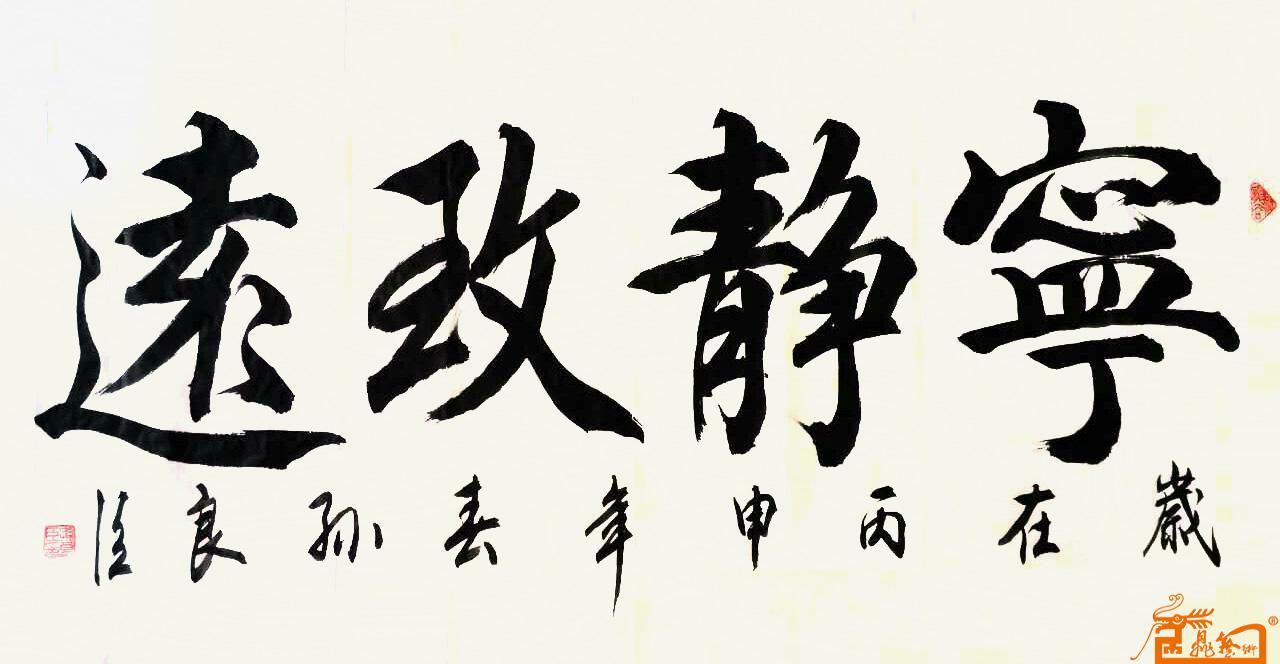 寧靜致遠
歲在丙申年春孫良臣
®